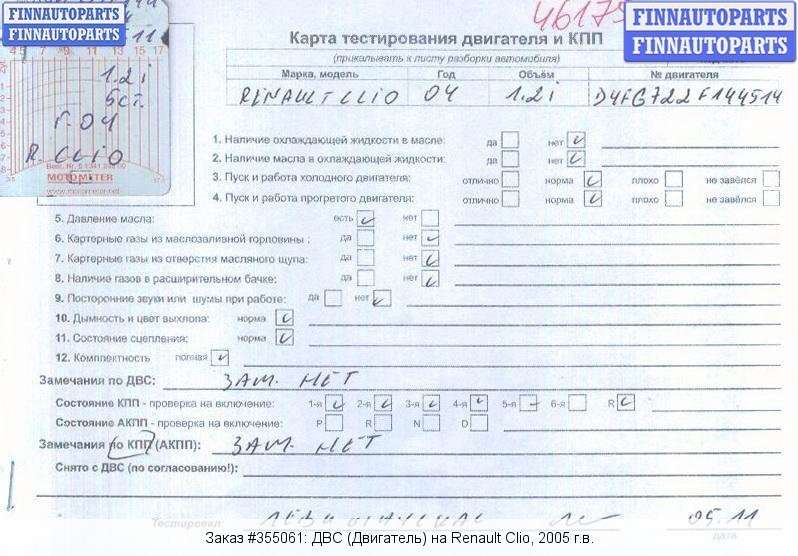 46175
FINNAUTOPARTS
FINNAUTOPARTS
FINNAUTOPARTS
FINNAUTOPARTS
11
5 7 9 11 13 15 17
1.2i
5ст.
Г.04
R. CLIO
MOTOMETER
Карта тестирования двигателя и КПП
(прикалывать к листу разборки автомобиля)
Марка, модель Год Объём № двигателя
RENAULT CLIO 04 1.2i D4FG722F144514
1. Наличие охлаждающей жидкости в масле: да нет
2. Наличие масла в охлаждающей жидкости: да нет
3. Пуск и работа холодного двигателя: отлично норма плохо не завёлся
4. Пуск и работа прогретого двигателя: отлично норма плохо не завёлся
5. Давление масла: есть нет
6. Картерные газы из маслозаливной горловины : да нет
7. Картерные газы из отверстия масляного щупа: да нет
8. Наличие газов в расширительном бачке: да нет
9. Посторонние звуки или шумы при работе: да нет
10. Дымность и цвет выхлопа: норма
11. Состояние сцепления: норма
12. Комплектность полная
Замечания по ДВС: ЗАМ. НЕТ
Состояние КПП - проверка на включение: 1-я 2-я 3-я 4-я 5-я 6-я R
Состояние АКПП - проверка на включение: P R N D
Замечания по КПП (АКПП): ЗАМ. НЕТ
Снято с ДВС (по согласованию!):
05.11
Тестировал: дата
Заказ #355061: ДВС (Двигатель) на Renault Clio, 2005 г.в.